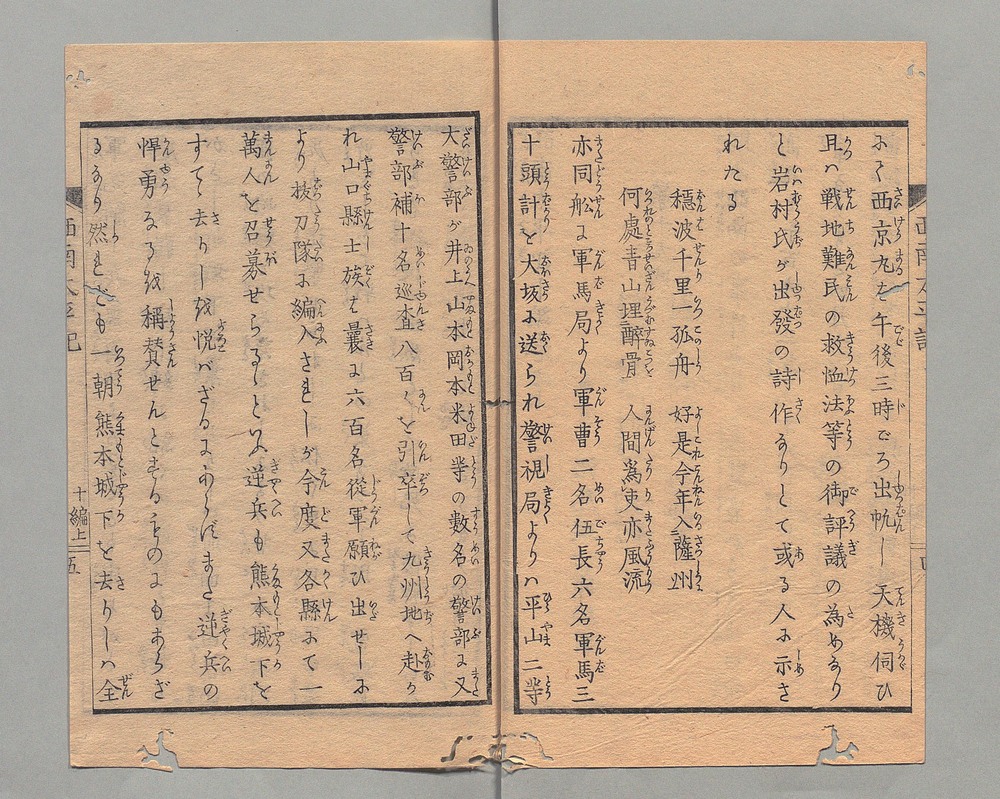 にて西京丸を午後三時ごろ出帆し天機伺ひ
且ハ戦地難民の救恤法等の御評議の為めなり
と岩村氏が出發の詩作ありとて或る人に示さ
れたる
穏波千里一孤舟　好是今年入薩州
何處青山埋醉骨　人間爲吏亦風流
亦同舩に軍馬局より軍曹二名伍長六名軍馬三
十頭計を大坂に送られ警視局よりハ平山二等
大警部が井上山本岡本米田等の数名の警部に又
警部補十名巡査八百人を引卒して九州地へ赴か
れ山口縣士族は曩に六百名從軍願ひ出せしに
より抜刀隊に編入されしが今度又各縣にて一
萬人を召募せらるゝといふ逆兵も熊本城下を
すてゝ去りしを悦バざるにあらねどまた逆兵の
悍勇なるを稱賛せんとするものにもあらざ
るなり然れども一朝熊本城下を去りしハ全
西南太平記
十編上
五
西南太平記
四